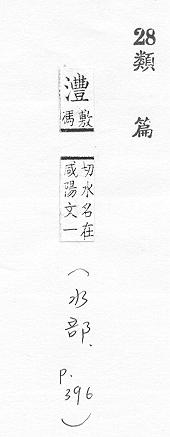 28
類篇
灃敷馮切水名在咸陽文一(水部.p.396)